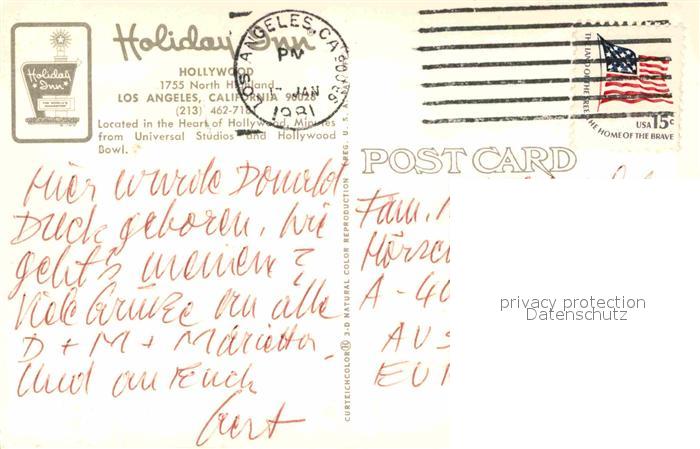 Holiday Inn
Holiday Inn
HOLLYWOOD
1755 North Highland
LOS ANGELES, CALIFORNIA 90028
(213) 462-71
Located in the Heart of Hollywood, Minutes
from Universal Studios and Hollywood
Bowl.
LOS ANGELES, CA
PM
JAN
1981
THE LAND OF THE FREE
THE HOME OF THE BRAVE
USA 15c
POST CARD
CURTEICHCOLOR 3-D NATURAL COLOR REPRODUCTION (REG. U.S.A.
Hier wurde Donald
Duck geboren. Wie
geht's meinen?
Viele Grüße an alle
D + M + Marietta
Und an Euch
Gert
Fam.
Hörsc
A - 40
AUS
EU
privacy protection
Datenschutz